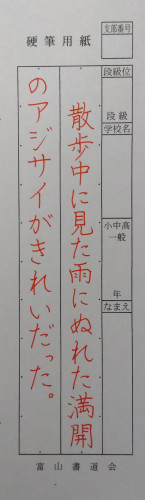 支部番号
硬筆用紙
段級位
段級
学校名
小中高
一般
年
なまえ
散歩中に見た雨にぬれた満開
のアジサイがきれいだった。
富山書道会